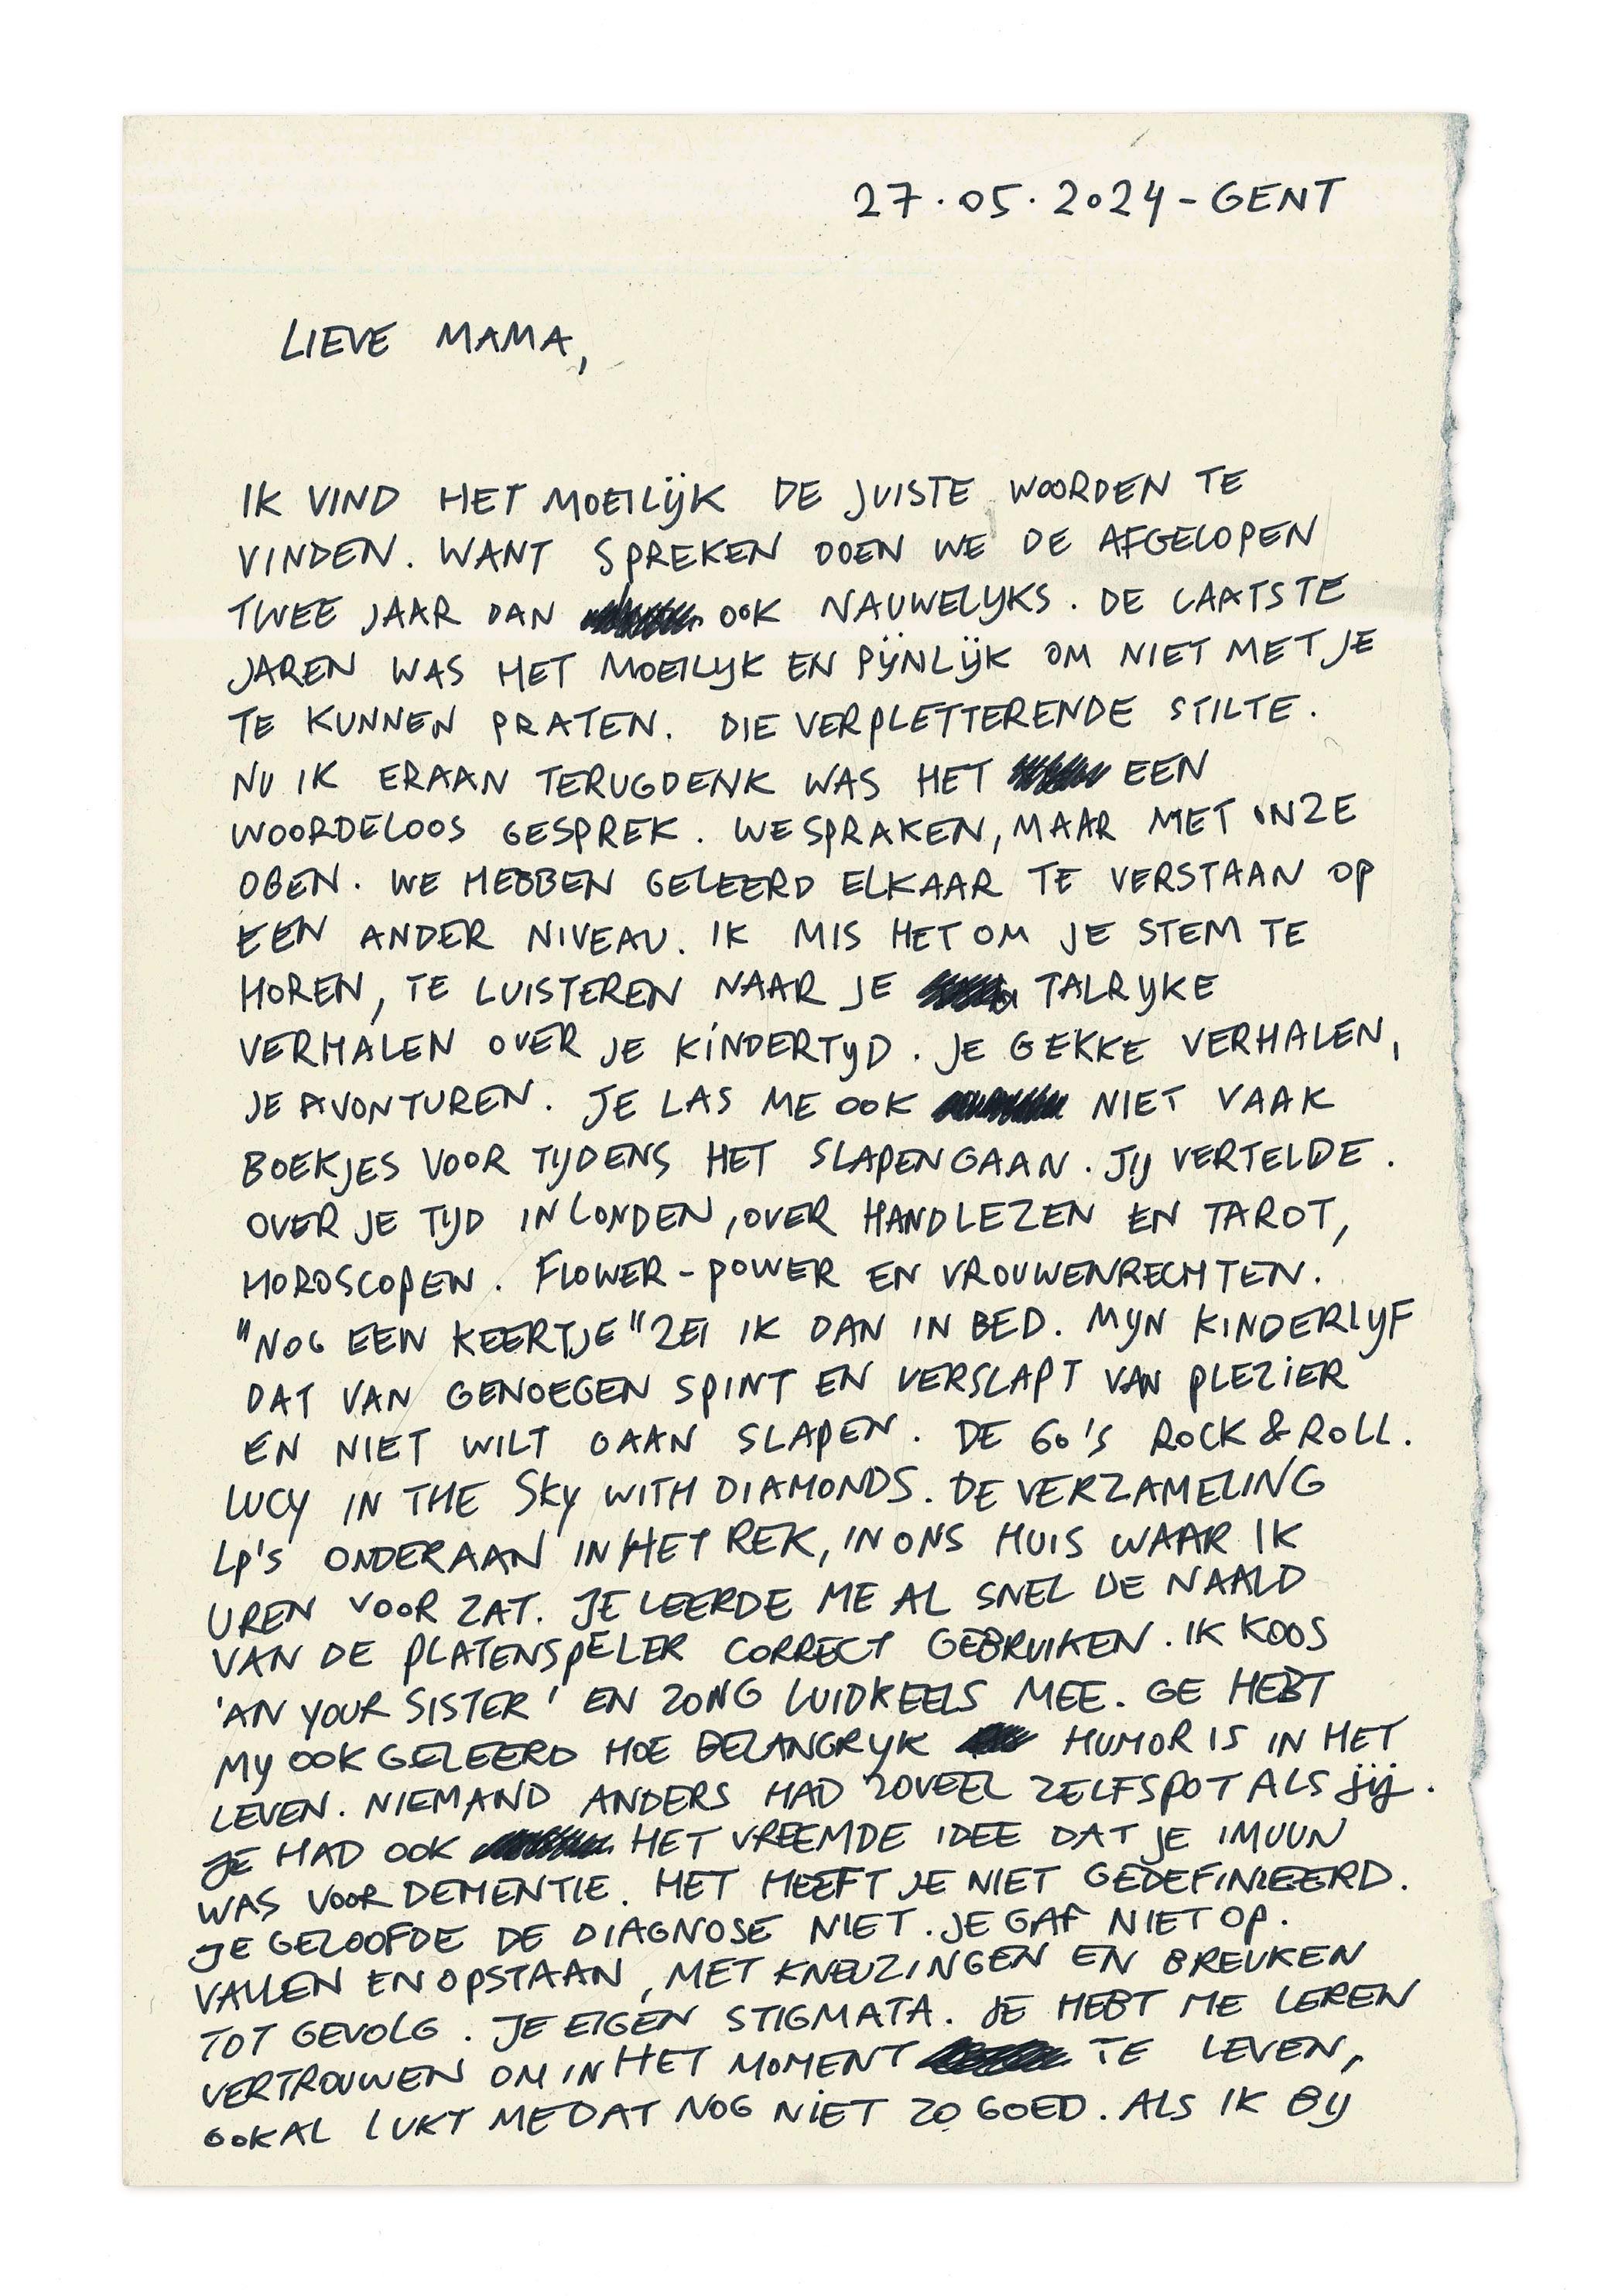 27.05.2024 - GENT
LIEVE MAMA,
IK VIND HET MOEILIJK DE JUISTE WOORDEN TE
VINDEN. WANT SPREKEN DOEN WE DE AFGELOPEN
TWEE JAAR DAN OOK NAUWELIJKS. DE LAATSTE
JAREN WAS HET MOEILIJK EN PIJNLIJK OM NIET MET JE
TE KUNNEN PRATEN. DIE VERPLETTERENDE STILTE.
NU IK ERAAN TERUGDENK WAS HET EEN
WOORDELOOS GESPREK. WE SPRAKEN, MAAR MET ONZE
OGEN. WE HEBBEN GELEERD ELKAAR TE VERSTAAN OP
EEN ANDER NIVEAU. IK MIS HET OM JE STEM TE
HOREN, TE LUISTEREN NAAR JE TALRIJKE
VERHALEN OVER JE KINDERTIJD. JE GEKKE VERHALEN,
JE AVONTUREN. JE LAS ME OOK NIET VAAK
BOEKJES VOOR TIJDENS HET SLAPENGAAN. JIJ VERTELDE.
OVER JE TIJD IN LONDEN, OVER HANDLEZEN EN TAROT,
HOROSCOPEN. FLOWER-POWER EN VROUWENRECHTEN.
"NOG EEN KEERTJE" ZEI IK DAN IN BED. MIJN KINDERLIJF
DAT VAN GENOEGEN SPINT EN VERSLAPT VAN PLEZIER
EN NIET WILT GAAN SLAPEN. DE 60'S ROCK & ROLL.
LUCY IN THE SKY WITH DIAMONDS. DE VERZAMELING
LP'S ONDERAAN IN HET REK, IN ONS HUIS WAAR IK
UREN VOOR ZAT. JE LEERDE ME AL SNEL DE NAALD
VAN DE PLATENSPELER CORRECT GEBRUIKEN. IK KOOS
'AN YOUR SISTER' EN ZONG LUIDKEELS MEE. GE HEBT
MIJ OOK GELEERD HOE BELANGRIJK HUMOR IS IN HET
LEVEN. NIEMAND ANDERS HAD ZOVEEL ZELFSPOT ALS JIJ.
JE HAD OOK HET VREEMDE IDEE DAT JE IMUUN
WAS VOOR DEMENTIE. HET HEEFT JE NIET GEDEFINIEERD.
JE GELOOFDE DE DIAGNOSE NIET. JE GAF NIET OP.
VALLEN EN OPSTAAN, MET KNEUZINGEN EN BREUKEN
TOT GEVOLG. JE EIGEN STIGMATA. JE HEBT ME LEREN
VERTROUWEN OM IN HET MOMENT TE LEVEN,
OOK AL LUKT ME DAT NOG NIET ZO GOED. ALS IK BIJ